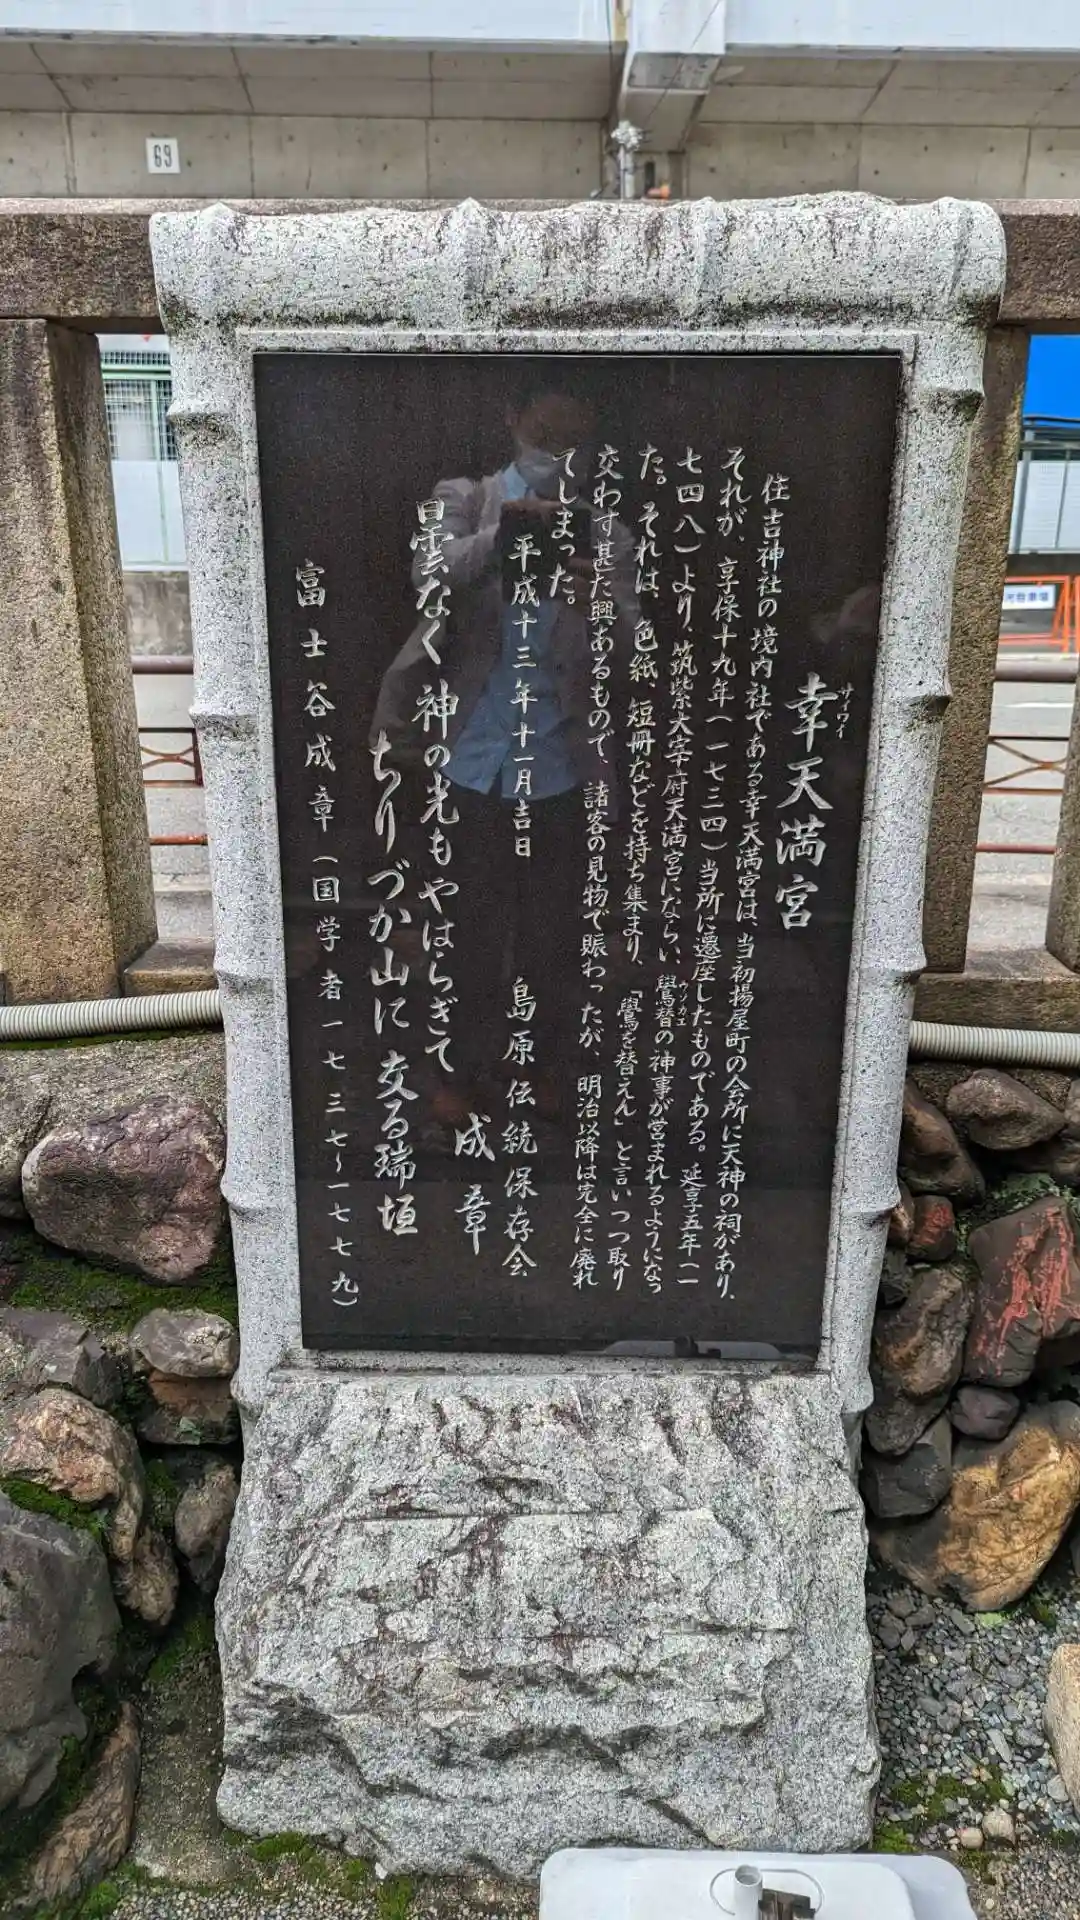 幸天満宮
サイワイ
住吉神社の境内社である幸天満宮は、当初揚屋町の会所に天神の祠があり、
それが、享保十九年(一七三四)当所に遷座したものである。延享五年(一
七四八)より、筑紫大宰府天満宮にならい、鷽替の神事が営まれるようになっ
ウソカエ
た。それは、色紙、短冊などを持ち集まり、「鷽を替えん」と言いつつ取り
交わす甚た興あるもので、諸客の見物で賑わったが、明治以降は完全に廃れ
てしまった。
平成十三年十一月吉日 島原伝統保存会
曇なく 神の光も やはらぎて
ちりづか山に 交る瑞垣
成章
富士谷成章(国学者一七三七~一七七九)
69